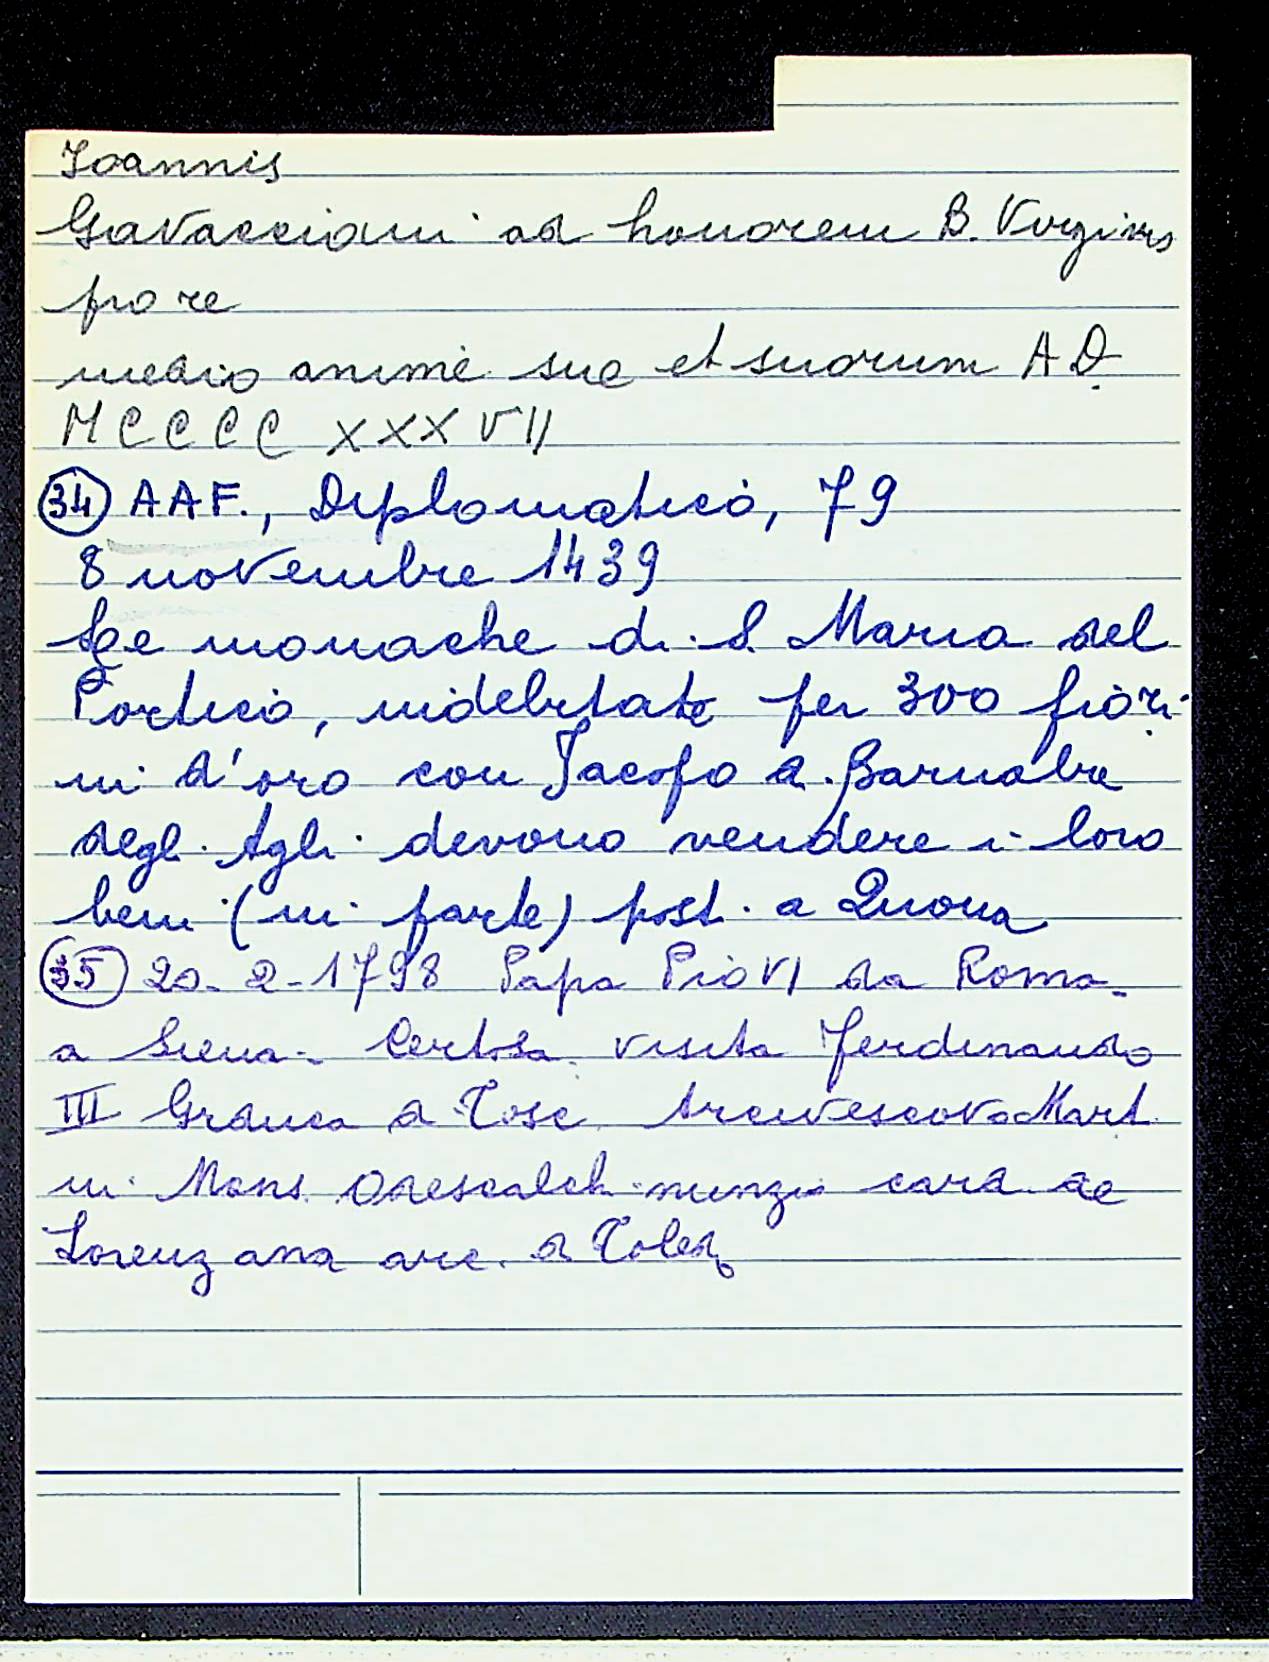 Ioannis
Gavacciani ad honorem B. Virginis
pro re
medio anime sue et suorum A D.
MCCCC XXXVII
34 A A F., Diplomatico, 79
8 novembre 1439
Le monache di S. Maria del
Portico, indebitate per 300 fiori-
ni d'oro con Jacopo d. Barnaba
degli Agli devono vendere i loro
beni (in parte) posti a Quona
35 20-2-1798 Papa Pio VI da Roma-
a Siena - Certosa visita Ferdinando
III Granduca di Tosc. Arcivescovo Mart
ini Mons. Odescalchi nunzio card. de
Lorenzana arc. d Toledo